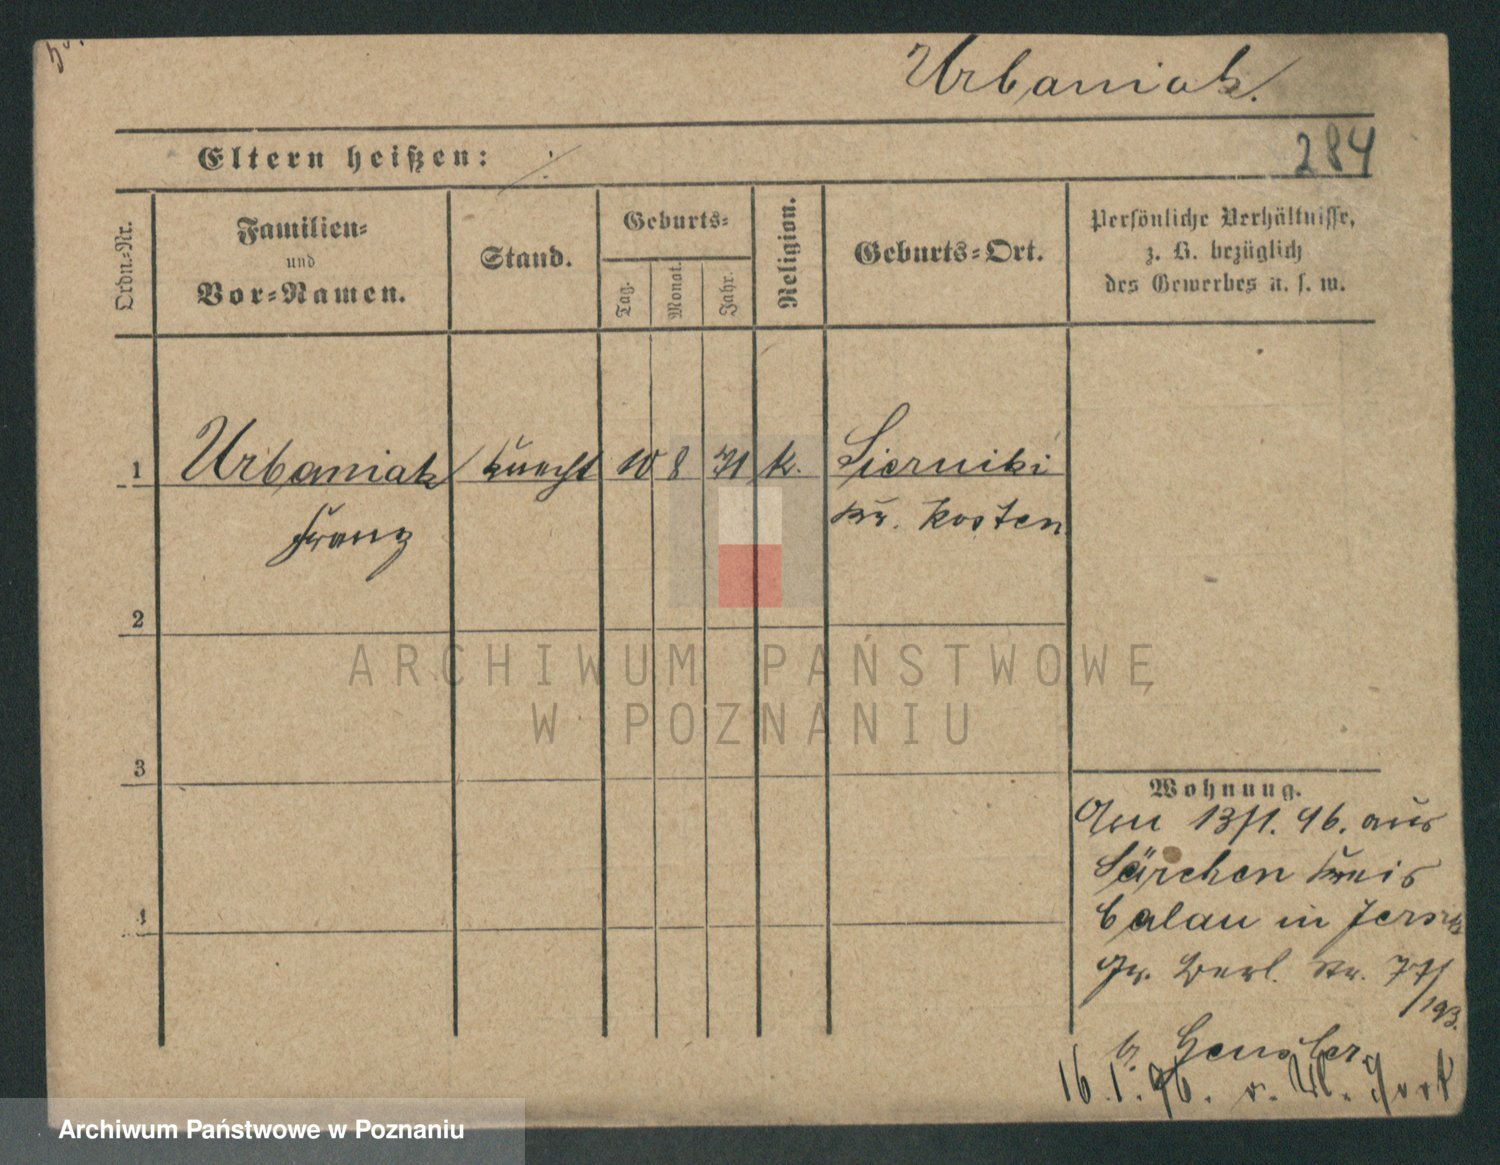 Urbaniak.
284
Eltern heißen:
Ordn.-Nr.
Familien-
und
Vor-Namen.
Stand.
Geburts-
Tag.
Monat.
Jahr.
Religion.
Geburts-Ort.
Persönliche Verhältnisse,
z. B. bezüglich
des Gewerbes u. s. w.
1 Urbaniak Knecht 10 8 71 k. Sierniki
Franz Kr. Kosten
2
3
4
Wohnung.
Am 13/1. 96. aus
Särchen Kreis
Calau in Jersitz
Gr. Berl. Str. 77/
193.
b. Hensler
16.1.96. v.
ARCHIWUM PAŃSTWOWE
W POZNANIU
Archiwum Państwowe w Poznaniu